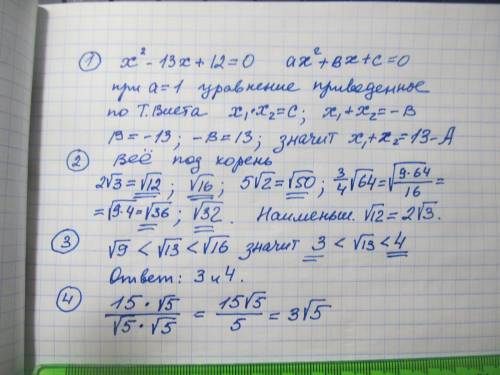 ① x² - 13x + 12 = 0    ax² + вx + c = 0
при a = 1 уравнение приведенное
по Т. Виета x₁·x₂ = C; x₁ + x₂ = -В
В = -13; -В = 13; значит x₁ + x₂ = 13 - А
② Всё под корень
2√3 = √12; √16; 5√2 = √50; 3/4 √64 = √(9·64/16) =
= √9·4 = √36; √32. Наименьш. √12 = 2√3.
③ √9 < √13 < √16 значит 3 < √13 < 4
Ответ: 3 и 4.
④ 15·√5 / √5·√5 = 15√5 / 5 = 3√5